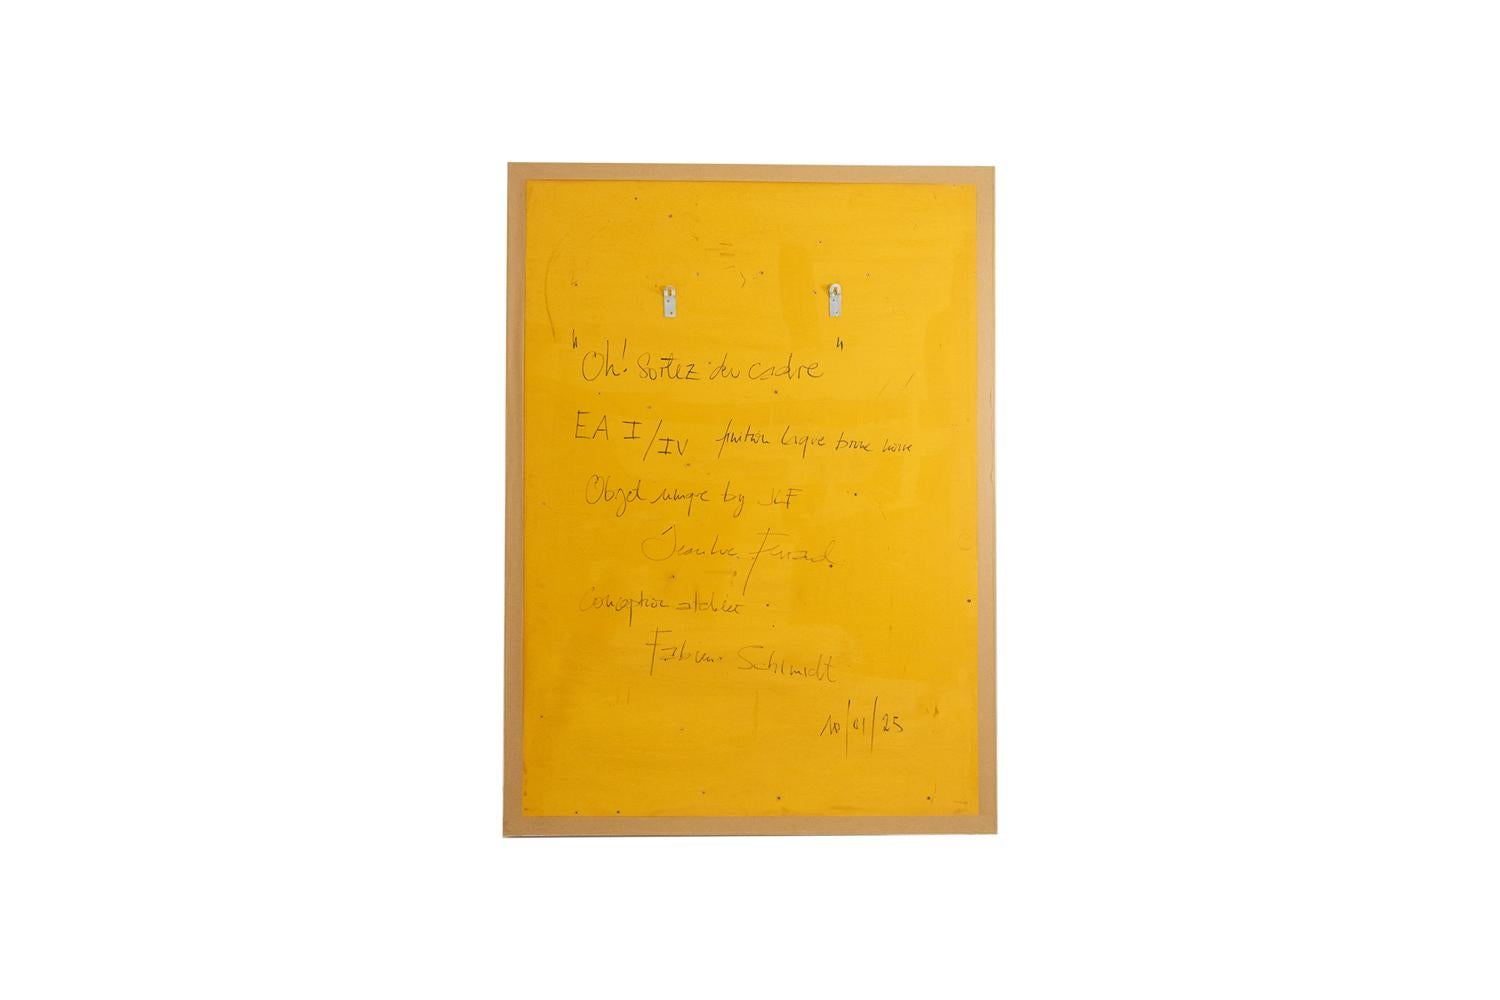 "Oh! Sortez du cadre"
EA I/IV finition laque brune noire
Objet unique by JLF
Jean Luc Ferrand
Conception atelier
Fabien Schmidt
10/01/25